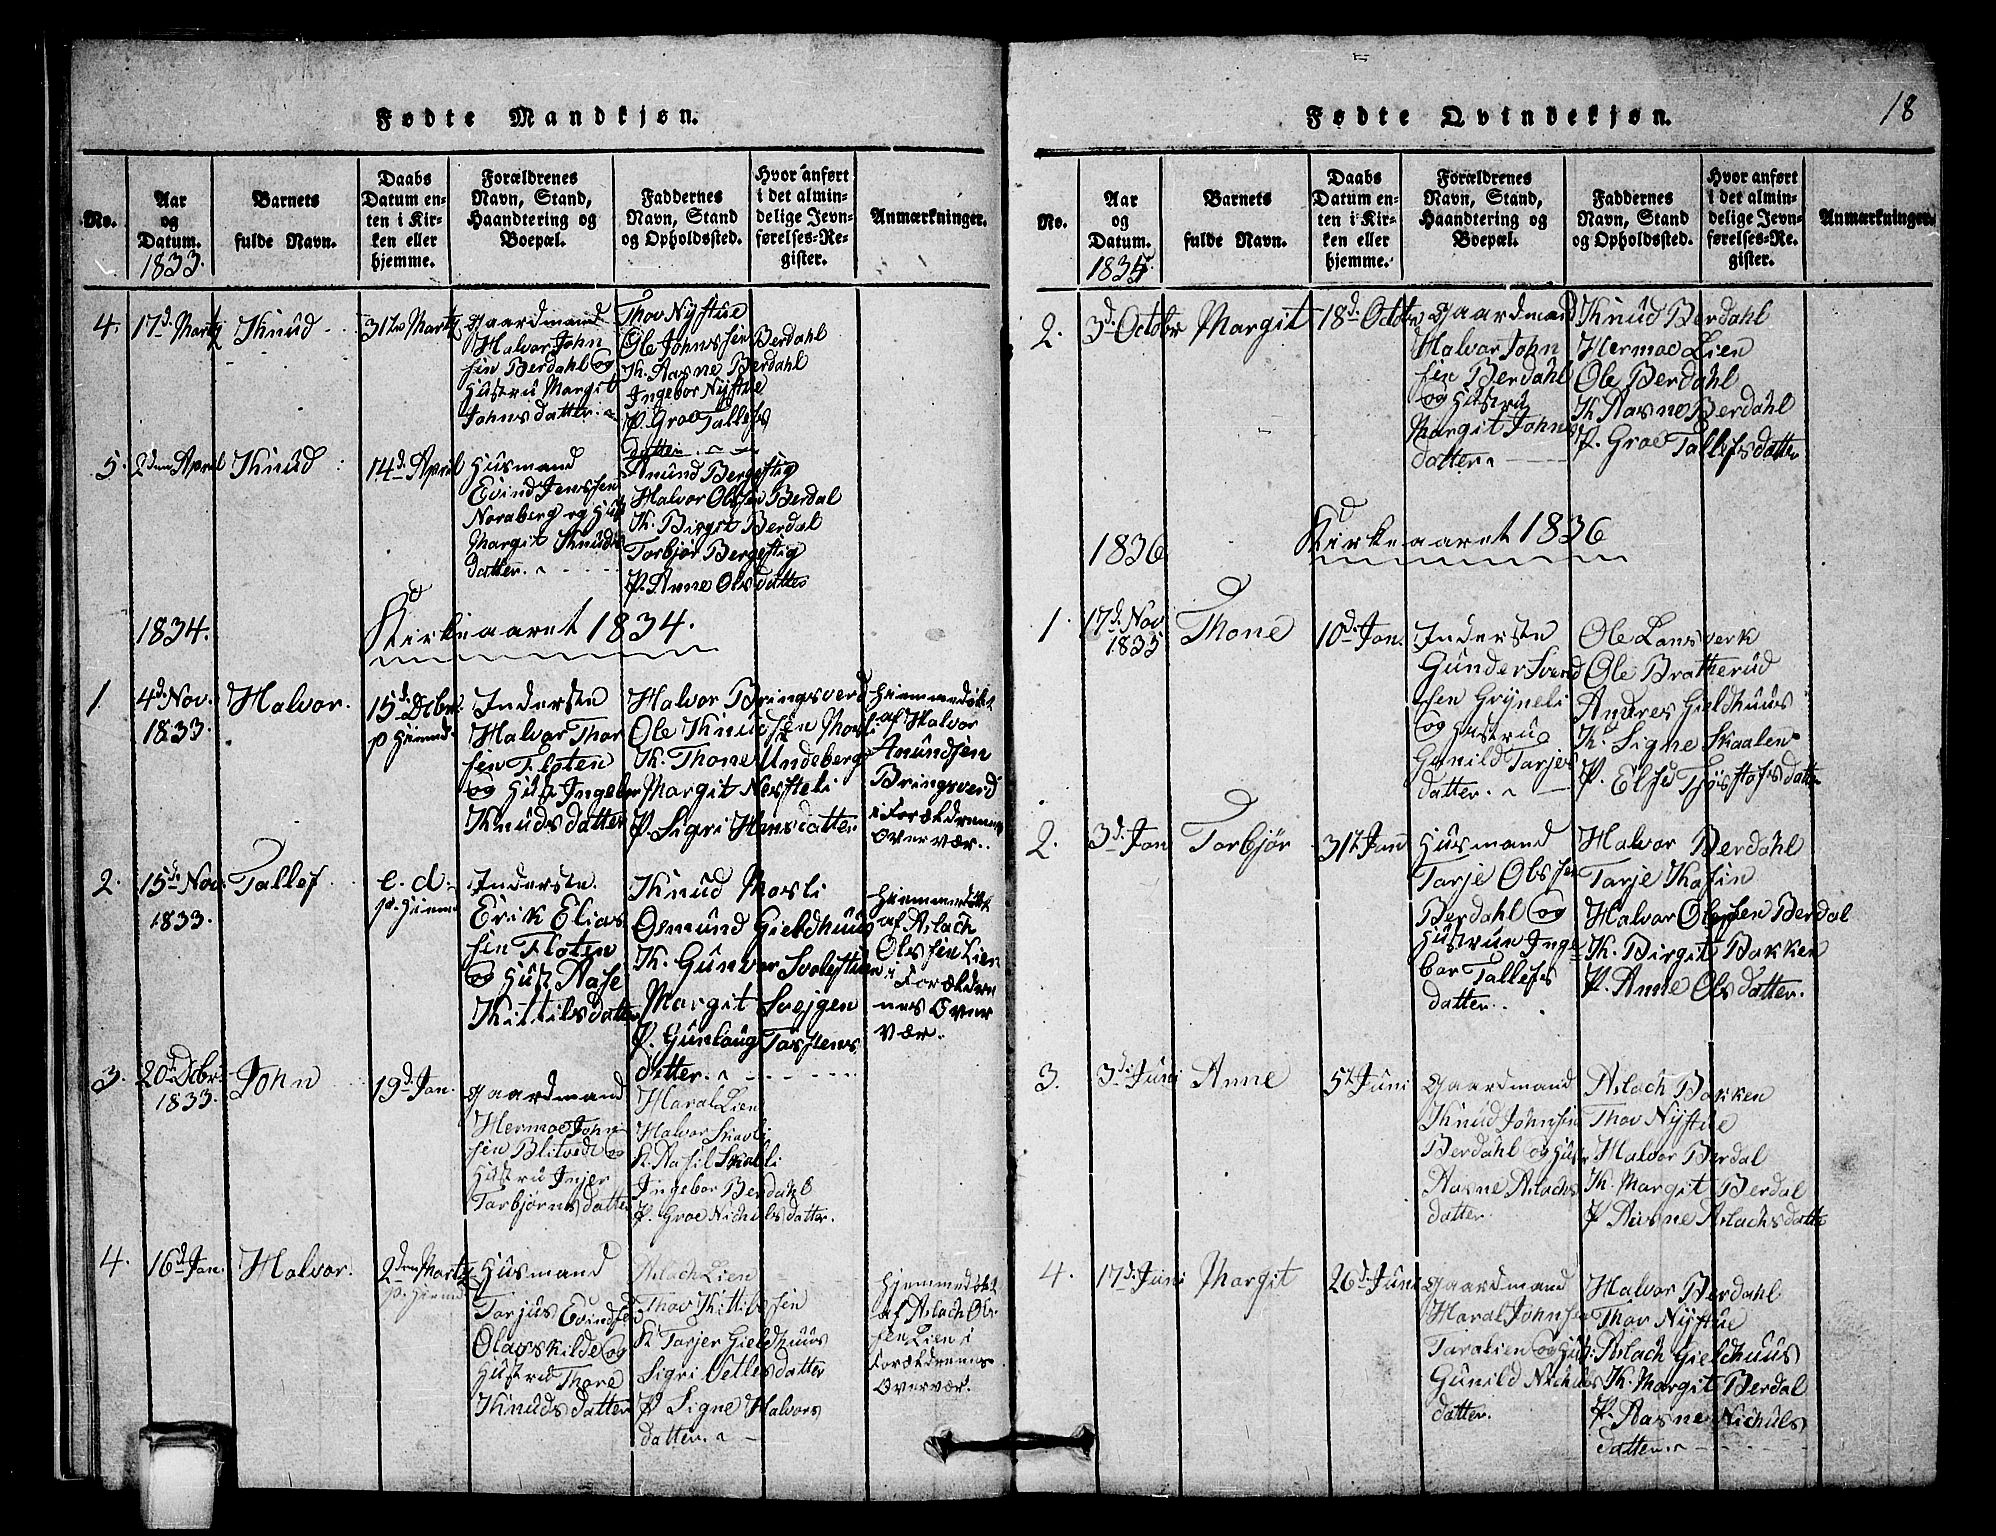 Fødte Mandkjøn.
No.
Aar
og
Datum.
1833.
Barnets
fulde Navn.
Daabs
Datum en-
ten i Kir-
ken eller
hjemme.
Forældrenes
Navn, Stand,
Haandtering og
Boepæl.
Faddernes
Navn, Stand
og Opholdssted.
Hvor anført
i det almin-
delige Jevn-
førelses-Re-
gister.
Anmærkninger.
4.
17d. Marty
Knud
31te Marty
Gaardmand
Halvor John
sen Berdahl og
Hustru Margit
Johnsdatter.
Thov Nystue
Ole Johnssen Berdahl
K. Aasne Berdahl
Ingebor Nystue
P. Groe Tallefs
datter.
5.
2den April
Knud
14d. April
Husmand
Evind Jenssen
Noraberg og Hust
Margit Knuds
datter.
Anund Bergestig
Halvor Olssen Berdal
K. Birgit Berdal
Torbjør Bergestig
P. Anne Olsdatter
1834.
Kirkeaaret 1834.
1
4d. Nov.
1833.
Halvor.
15d. Dcbr.
p Hiemd.
Inderste
Halvor Thor
sen Floten
og Hust Ingebor
Knudsdatter
Halvor Bringsverd
Ole Knudsen Mosli
K. Thone Undeberg
Margit Nesteli
P. Sigri Hansdatter
Hiemmedøbt
af Halvor
Anundsen
Bringsverd
i Forældrenes
Overvær.
2.
15d. Nov.
1833.
Tallef
e. d.
p. Hiemd
Inderste.
Erik Elias
sen Floten
og Hust Aase
Kittilsdatter
Knud Mosli
Osmund Gieldhuus
K. Gunvor Svolestuen
Margit Svejgen
P. Gunlaug Torstens
datter.
Hiemmedøbt
af Aslach
Olssen Lien
i Forældre
nes Over
vær.
3.
20d. Dcbr.
1833.
John
19d. Jan.
Gaardmand
Hermoe John
sen Blitvedt og
Hustru Injer
Torbjørnsdatter
Haral Lien
Halvor Skavli
K. Aasil Skalli
Ingebor Berdahl
P. Groe Nichulsdatter.
4.
16d. Jan.
Halvor.
2den Marty
p. Hiemd
Husmand
Torjus Evindsen
Olavskilde og
Hustru Thore
Knudsdatter
Aslach Lien
Thov Kittilssen
K. Torjer Gieldhuus
Sigri Vetlesdatter
P Signe Halvors
datter.
Hjemmedøbt
af Aslach Ols
sen Lien i
Forældrenes
Overvær.
18
Fødte Qvindekjøn.
No.
Aar
og
Datum.
1835.
Barnets
fulde Navn.
Daabs
Datum en-
ten i Kir-
ken eller
hjemme.
Forældrenes
Navn, Stand,
Haandtering og
Boepæl.
Faddernes
Navn, Stand
og Opholdssted.
Hvor anført
i det almin-
delige Jevn-
førelses-Re-
gister.
Anmærkninger.
2.
3d. Octobr
Margit
18d. Octbr
Gaardmand
Halvor John
sen Berdahl
og Hustru
Margit Johns
datter.
Knud Berdahl
Hermoe Lien
Ole Berdahl
K. Aasne Berdahl
P. Groe Tallefsdatter
1836
Kirkeaaret 1836
1.
17d. Nov
1835
Thone
10d. Jan.
Inderste
Gunder Svend
sen Gryneli
og Hustru
Gunild Torjes
datter.
Ole Lansverk
Ole Bratherud
Andres Gieldhuus
K. Signe Skaalen
P. Else Tjøstofsdatter
2.
3d. Jan
Torbjør
31t. Jan
Husmand
Tarje Olssen
Berdahl og
Hustrun Inge
bor Tallefs
datter.
Halvor Berdahl
Tarje Kasin
Halvor Olessen Berdal
K. Birgit Bakken
P. Anne Olsdatter.
3.
3d. Juni
Anne
5t. Juni
Gaardmand
Knud Johnsen
Berdahl og Hustr
Aasne Aslachs
datter.
Aslach Bakken
Thov Nystue
Halvor Berdal
K. Margit Berdal
P Aasne Aslachsdatte
4.
17d. Juni
Margit
26d. Juni
Gaardmand
Haral Johnsen
Taralien og Hust:
Gunild Nichuls
datter.
Halvor Berdahl
Thov Nystue
Aslach Gieldhuus
K. Margit Berdal
P. Aasne Nichuls
datter.